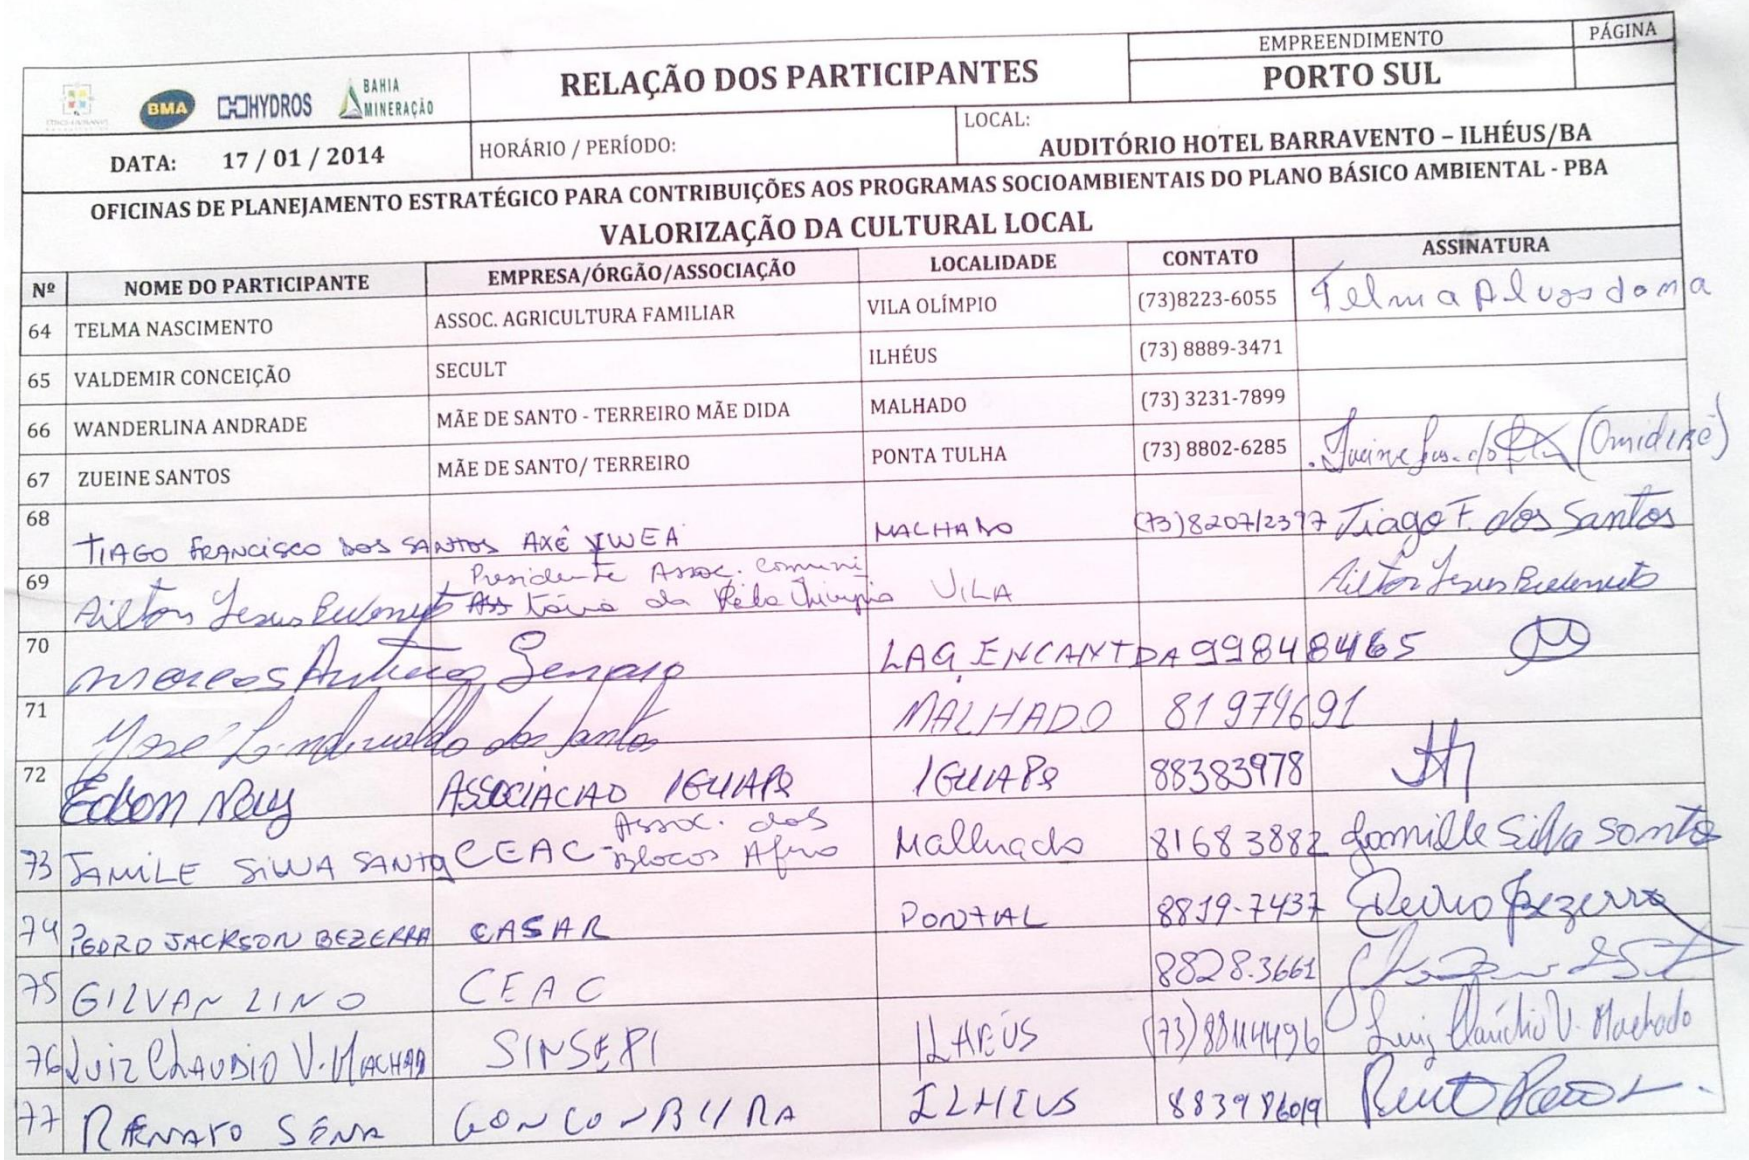 RELAÇÃO DOS PARTICIPANTES
EMPREENDIMENTO
PORTO SUL
PÁGINA
BMA HYDROS BAHIA MINERAÇÃO
DATA: 17 / 01 / 2014
HORÁRIO / PERÍODO:
LOCAL:
AUDITÓRIO HOTEL BARRAVENTO – ILHÉUS/BA
OFICINAS DE PLANEJAMENTO ESTRATÉGICO PARA CONTRIBUIÇÕES AOS PROGRAMAS SOCIOAMBIENTAIS DO PLANO BÁSICO AMBIENTAL - PBA
VALORIZAÇÃO DA CULTURAL LOCAL
Nº NOME DO PARTICIPANTE EMPRESA/ÓRGÃO/ASSOCIAÇÃO LOCALIDADE CONTATO ASSINATURA
64 TELMA NASCIMENTO ASSOC. AGRICULTURA FAMILIAR VILA OLÍMPIO (73)8223-6055 Telma
65 VALDEMIR CONCEIÇÃO SECULT ILHÉUS (73) 8889-3471
66 WANDERLINA ANDRADE MÃE DE SANTO - TERREIRO MÃE DIDA MALHADO (73) 3231-7899
67 ZUEINE SANTOS MÃE DE SANTO/ TERREIRO PONTA TULHA (73) 8802-6285 (Omiderê)
68 TIAGO FRANCISCO DOS SANTOS AXÉ MALHADO (73)8207/2397 Tiago F. dos Santos
69 Ailton Jesus Presidente Assoc. Comuni
tária da VILA Ailton Jesus
70 Marcos Antonio LAG ENCANTDA 99848465
71 José dos Santos MALHADO 81974691
72 Edson Ney ASSOCIACAO IGUAPE IGUAPE 88383978
73 JAMILE SILVA SANTO CEAC - Assoc. dos
Blocos Afro Malhado 81683882 Jamille Silva Santo
74 PEDRO JACKSON BEZERRA CASAR PONTAL 8819-7437 Pedro Bezerra
75 GILVAN LINO CEAC 8828.3661
76 LUIZ CLAUDIO V. MACHAD SINSEPI ILHÉUS (73)88114496 Luiz Claúdio V. Machado
77 RENATO SENA GONCONBIRA ILHEUS 88398609